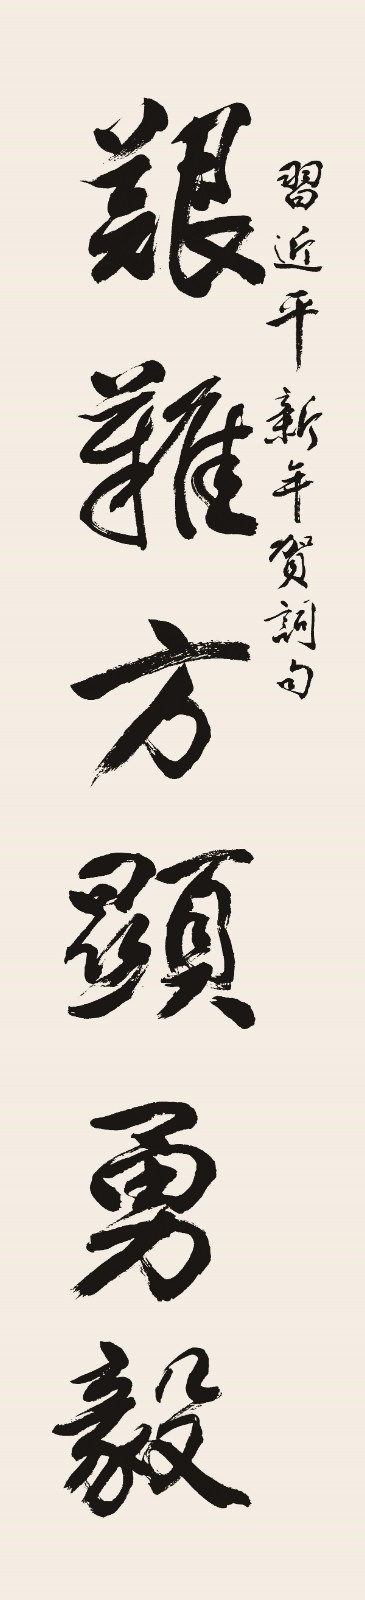 習近平新年賀詞句
艱難方顯勇毅